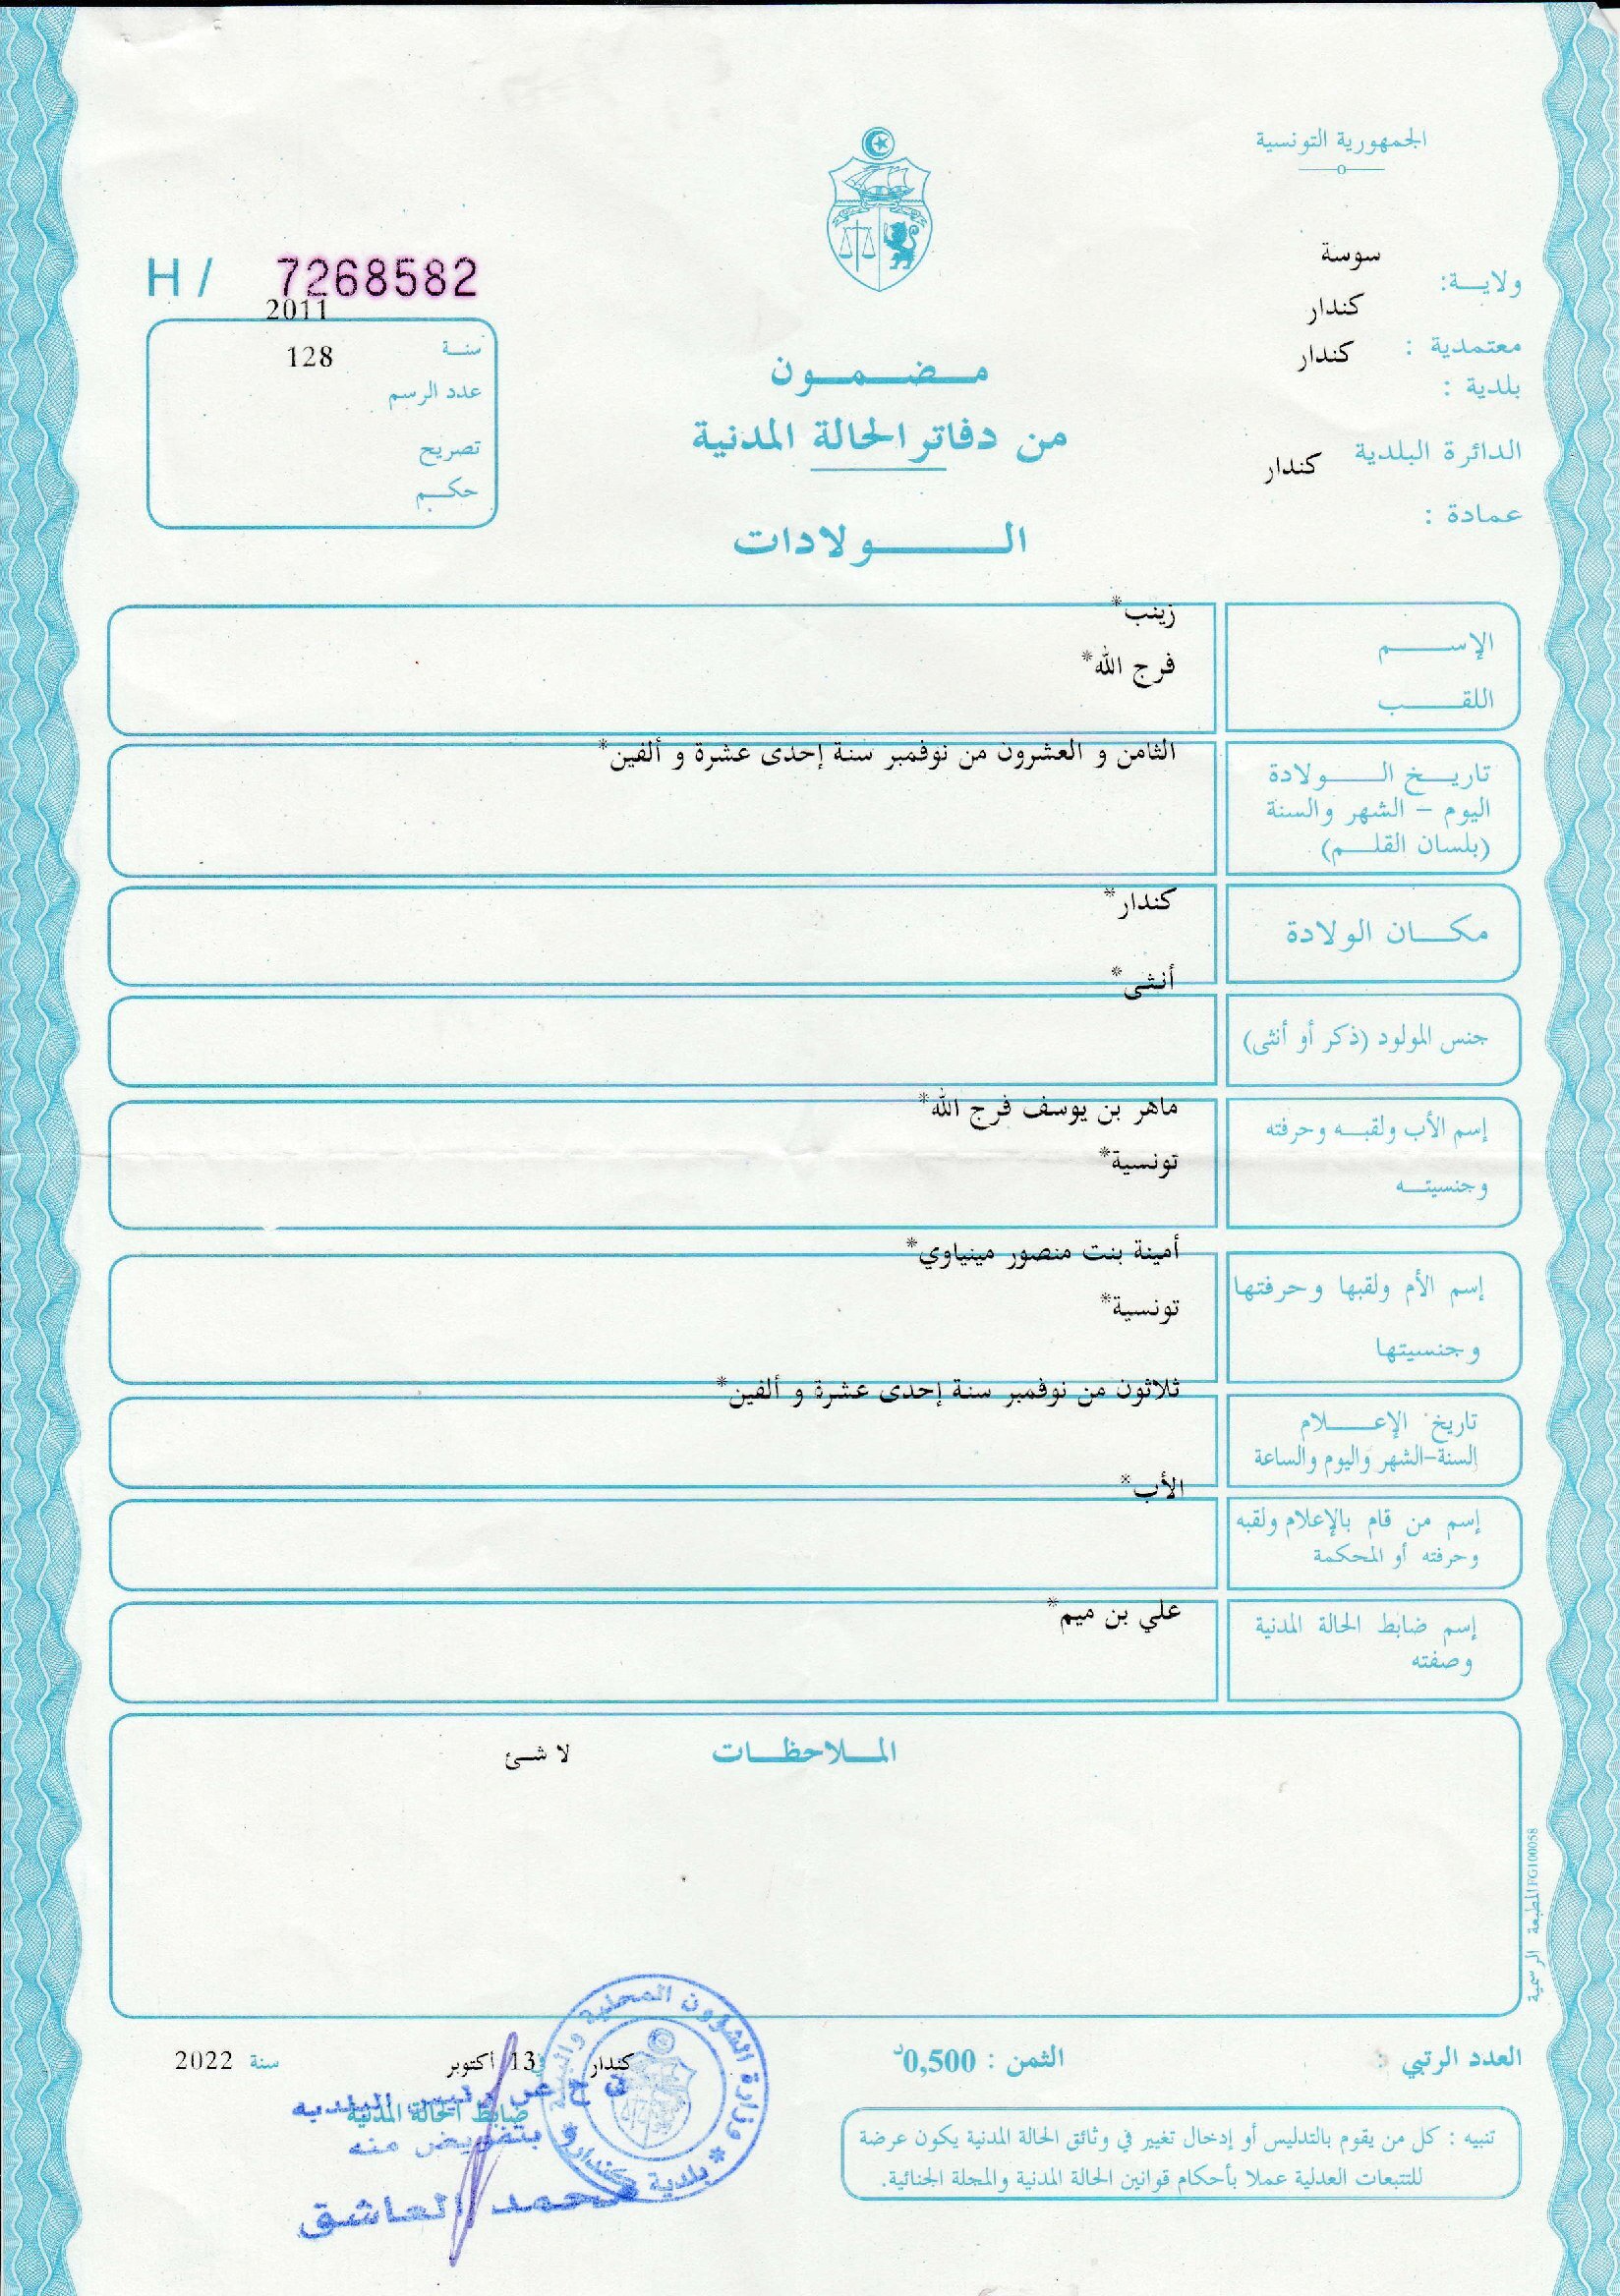 الجمهورية التونسية
ولاية: سوسة
معتمدية : كندار
بلدية : كندار
الدائرة البلدية كندار
عمادة :
H / 7268582
سنة 2011
عدد الرسم 128
تصريح
حكم
مضمون
من دفاتر الحالة المدنية
الولادات
الإسم زينب*
اللقب فرج الله*
تاريخ الولادة الثامن و العشرون من نوفمبر سنة إحدى عشرة و ألفين*
اليوم - الشهر والسنة
(بلسان القلم)
مكان الولادة كندار*
جنس المولود (ذكر أو أنثى) أنثى*
إسم الأب ولقبه وحرفته ماهر بن يوسف فرج الله*
وجنسيته تونسية*
إسم الأم ولقبها وحرفتها أمينة بنت منصور مينياوي*
وجنسيتها تونسية*
تاريخ الإعلام ثلاثون من نوفمبر سنة إحدى عشرة و ألفين*
السنة-الشهر واليوم والساعة
إسم من قام بالإعلام ولقبه الأب*
وحرفته أو المحكمة
إسم ضابط الحالة المدنية علي بن ميم*
وصفته
الملاحظات لا شئ
المطبعة الرسمية FG100058
العدد الرتبي :
الثمن : 0,500د
كندار في 13 أكتوبر سنة 2022
ضابط الحالة المدنية
عن رئيس البلدية
بتفويض منه
محمد العاشق
وزارة الشؤون المحلية والبيئة
* بلدية كندار *
تنبيه : كل من يقوم بالتدليس أو إدخال تغيير في وثائق الحالة المدنية يكون عرضة
للتتبعات العدلية عملا بأحكام قوانين الحالة المدنية والمجلة الجنائية.